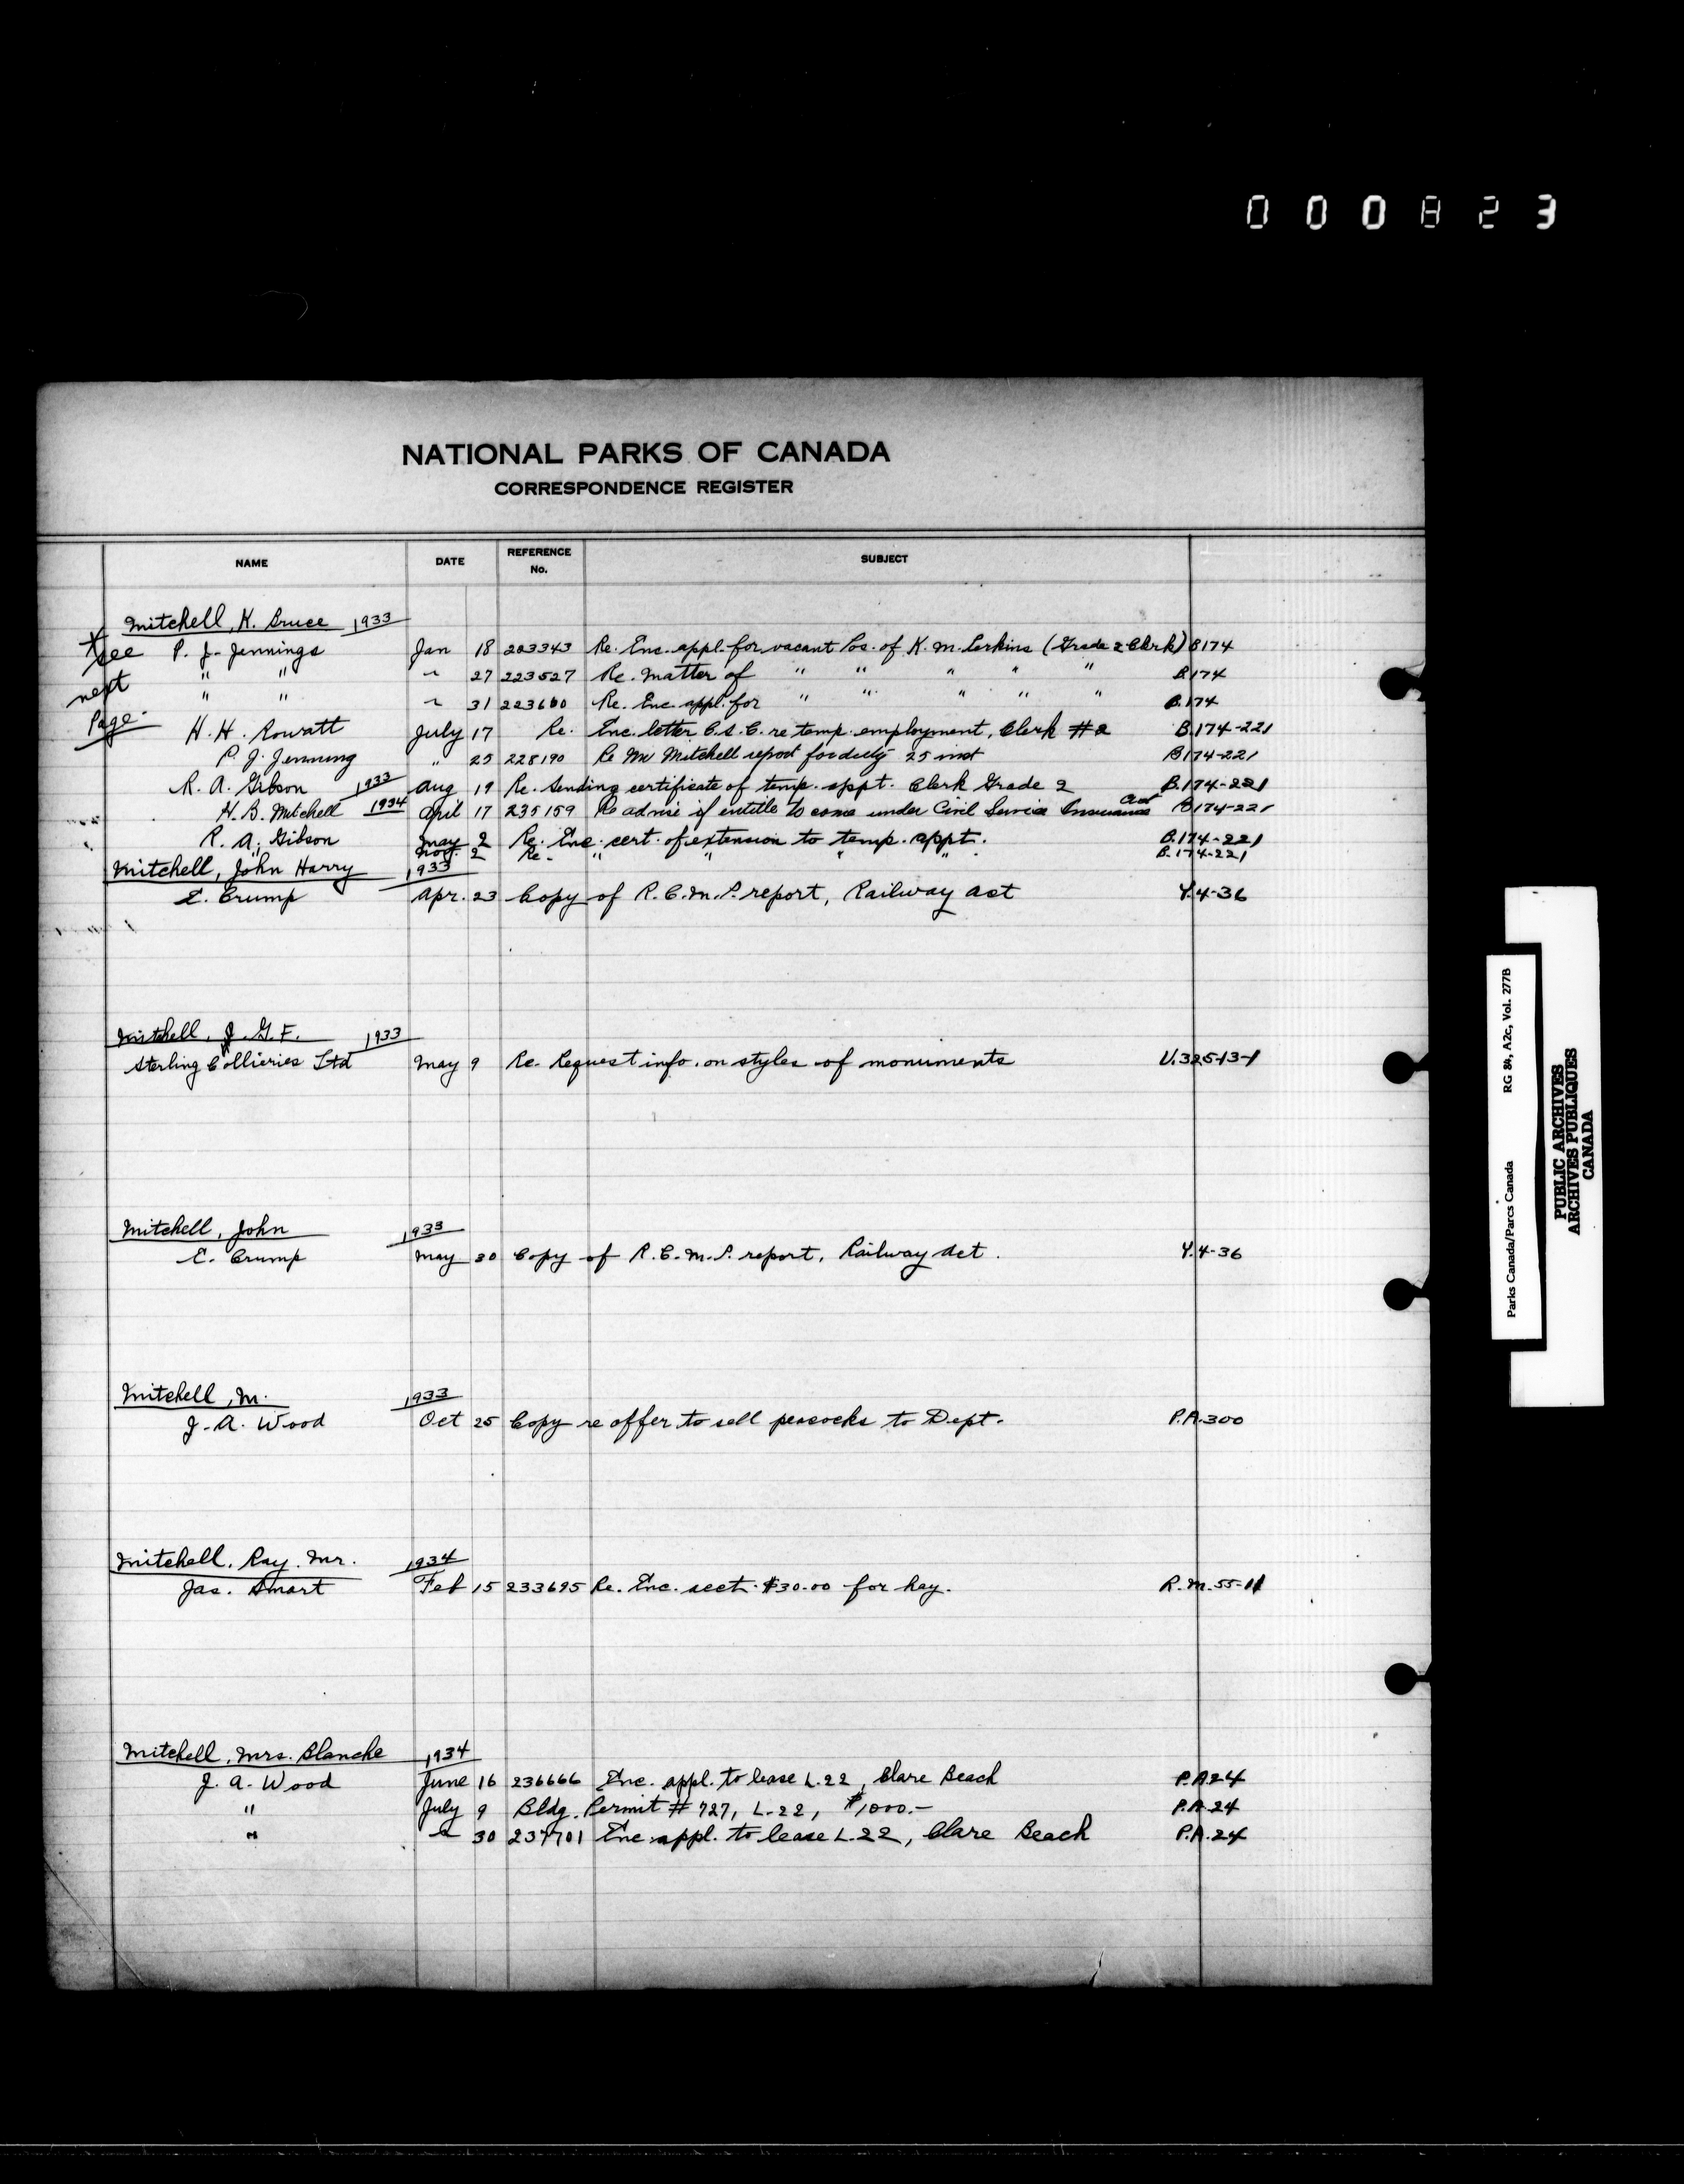 000823
NATIONAL PARKS OF CANADA
CORRESPONDENCE REGISTER
NAME DATE REFERENCE No. SUBJECT
Mitchell, K. Bruce 1933
See P. J. Jennings Jan 18 203343 Re. Enc. appl. for vacant Pos. of K. M. Perkins (Grade 2 Clerk) B174
next " " " 27 223527 Re. Matter of " " " " " B.174
" " " 31 223600 Re. Enc. appl. for " " " " " B.174
Page. H. H. Rowatt July 17 Re. Enc. letter C.S.C. re temp. employment, Clerk #2 B.174-221
P. J. Jenning " 25 228190 Re Mr Mitchell report for duty 25 inst B174-221
R. A. Gibson 1933 Aug 19 Re. Sending certificate of temp. appt. Clerk Grade 2 B.174-221
H. B. Mitchell 1934 April 17 235159 Re advise if entitle to come under Civil Service Insurance Act B174-221
R. A. Gibson May 2 Re. Enc. cert. of extension to temp. appt. B.174-221
" Nov. 2 Re. " " " " B.174-221
Mitchell, John Harry 1933
E. Crump Apr. 23 Copy of R.C.M.P. report, Railway Act Y.4-36
Mitchell, J. G. F. 1933
Sterling Collieries Ltd May 9 Re. Request info. on styles of monuments U.325-13-1
Mitchell, John 1933
E. Crump May 30 Copy of R.C.M.P. report, Railway Act. Y.4-36
Mitchell, M. 1933
J. A. Wood Oct 25 Copy re offer to sell peacocks to Dept. P.A.300
Mitchell, Ray. Mr. 1934
Jas. Smart Feb 15 233695 Re. Enc. acct. $30.00 for hay. R.M.55-11
Mitchell, Mrs. Blanche 1934
J. A. Wood June 16 236666 Enc. appl. to lease L.22, Clare Beach P.A.24
" July 9 Bldg. Permit # 727, L-22, $1000.- P.A.24
" " 30 237701 Enc. appl. to lease L.22, Clare Beach P.A.24
Parks Canada/Parcs Canada RG 84, A2c, Vol. 277B
PUBLIC ARCHIVES
ARCHIVES PUBLIQUES
CANADA